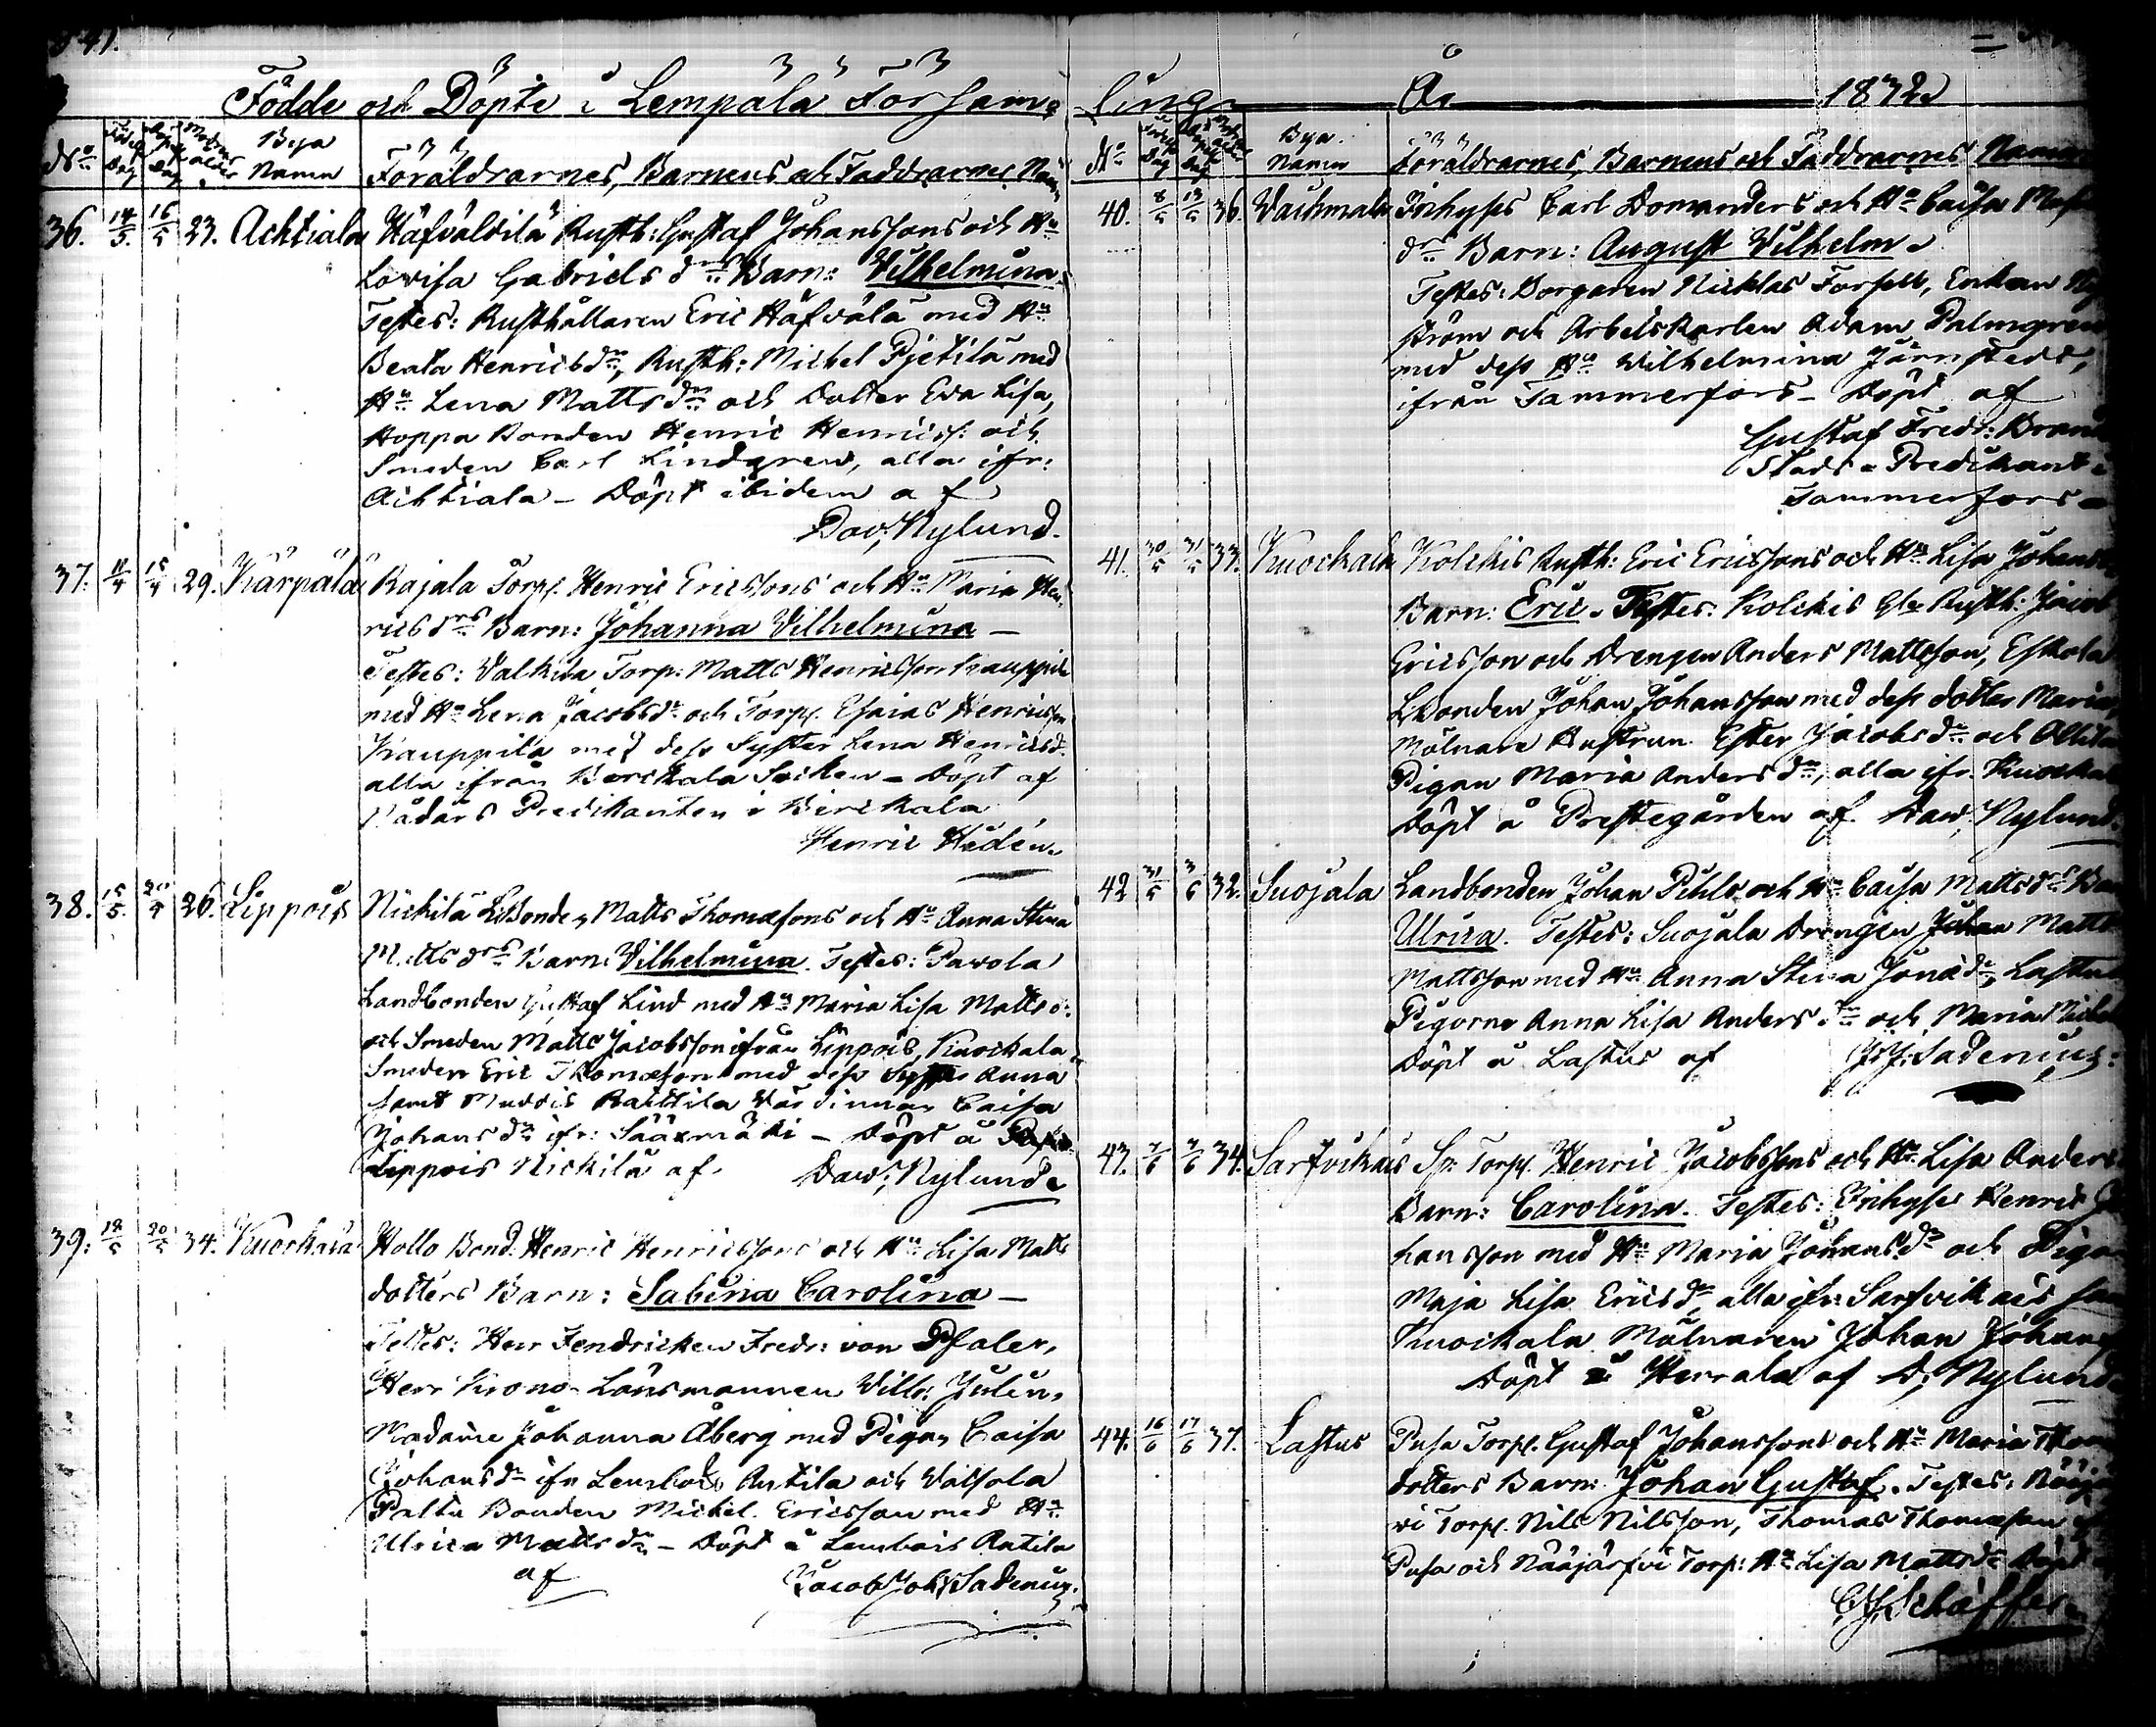 541.
Födde och Döpte i Lempälä Försam=
No Födelse Dag Döpelse Dag Modrens ålder Bya Namn Föräldrarnes, Barnens och Faddrarnes Namn
36. 14/5. 16/5 23. Achtiala Häfvälditä Rusth: Gustaf Johanssons och Hu
Lovisa Gabriels drs Barn: Vilhelmina.
Testes: Rusthållaren Eric Häfvälä med Hu
Beata Henricsdr, Rusth: Michel Pjetilä med
Hu Lena Mattsdr och dotter Eva Lisa,
Hoppa Bonden Henric Henricss: och
Smeden Carl Lindgren, alla ifr:
Achtiala – Döpt ibidem af
Dav; Nylund.
37. 11/4 15/4 29. Kärpälä Rajala Torp. Henric Ericssons och Hu Maria Hen-
rics drs Barn: Johanna Vilhelmina –
Testes: Valkila Torp: Matts Henricsson Kauppila
med Hu Lena Jacobsdr och Torp. Esaias Henricsson
Kauppila med dess Syster Lena Henricsdr
alla ifrån Birckala Socken – Döpt af
Sådärs Predikanten i Birckala
Henric Hedén.
38. 15/5. 20/5 26. Lippois Nickilä LBonden Matts Thomæsons och Hu Anna Stina
Matts drs Barn: Vilhelmina. Testes: Pavola
Landbonden Gustaf Lind med Hu Maria Lisa Mattsd:
och Smeden Matts Jacobsson ifrån Lippois, Kuockala
Smeden Eric Thomæson med dess Syster Anna
samt Raittila Värdinnan Caisa
Johansdr ifr: Sääxmäki – Döpt å
Lippois Nickilä af. Dav; Nylund
39. 18/5 20/5 34. Kuockala Hollo Bond: Henric Henricssons och Hu Lisa Matts
dotters Barn: Sabina Carolina –
Testes: Herr Fendricken Fredr: von Pfaler,
Herr Krono-Länsmannen Vilh: Julin,
Madame Johanna Åberg med Pigan Caisa
Johansdr ifr Lembois Antila och Vaisola
Palta Bonden Michel Ericsson med Hu
Ulrica Mattsdr – Döpt å Lembois Antila
af Jacob Joh: Sadenius.
ling År 1832
No Födelse Dag Bya Namn Föräldrarnes, Barnens och Faddrarnes Namn
40. 8/5 13/5 36. Vaihmala Inhyses Carl Domanders och Hu Caisa
drs Barn: August Vilhelm.
Testes: Borgaren Nicklas Forsell, Enkan
ström och Arbetskarlen Adam Palmgren
med dess Hu Vilhelmina Järnstedt,
ifrån Tammerfors – Döpt af
Gustaf Fredr:
Stads-Predikant i
Tammerfors –
41. 30/5 31/5 33. Kuockala Kolckis Rusth: Eric Ericssons och Hu Lisa Johans
Barn: Eric. Testes: Kolckis Rusth: Jacob
Ericsson och Drengen Anders Mattsson, Eskola
LBonden Johan Johansson med dess dotter Maria,
Mölnare Hustrun Ester Jacobsdr och
Pigan Maria Andersdr, alla ifr. Kuockala
Döpt å Prestegården af. Dav; Nylund.
42 31/5 3/6 32. Suojala Landbonden Johan Pihls och Hu Caisa Matts drs
Ulrica. Testes: Suojala Drengen Johan Matts
Mattsson med Hu Anna Stina Jonædr, Lastus
Pigorne Anna Lisa Andersdr och Maria
Döpt å Lastus af J.J. Sadenius.
43. 7/6 34. Sarfvickais Sp: Torp. Henric Jacobssons och Hu Lisa Anders
Barn: Carolina. Testes: Inhyses Henric Jo
hansson med Hu Maria Johansdr och Pigan
Maja Lisa Ericsdr, alla ifr: Sarfvikais
Kuockala Mölnaren Johan Johans
Döpt å Herrala af D; Nylund
44. 16/6 17/6 37. Lastus Pusa Torp. Gustaf Johanssons och Hu Maria Thom
dotters Barn: Johan Gustaf. Testes: Nääjär
vi Torp. Nils Nilsson, Thomas Thomæson
Pusa och Nääjärfvi Torp: Hu Lisa Mattsdr Döpt
Schäffer